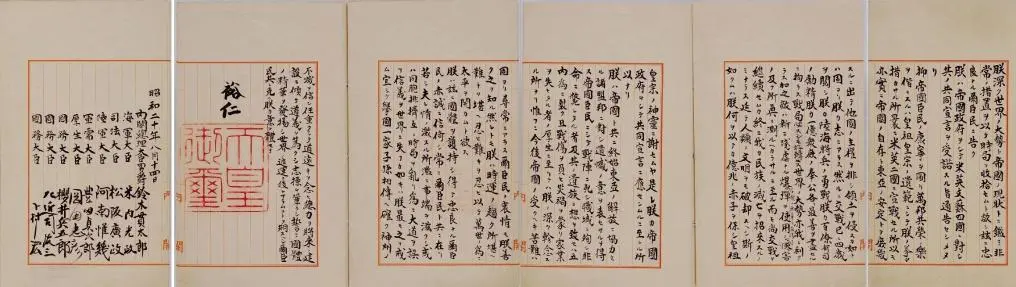 朕深ク世界ノ大勢ト帝國ノ現狀トニ鑑ミ非
常ノ措置ヲ以テ時局ヲ收拾セムト欲シ茲ニ忠
良ナル爾臣民ニ告ク
朕ハ帝國政府ヲシテ米英支蘇四國ニ對シ
其ノ共同宣言ヲ受諾スル旨通告セシメタ
リ
抑〻帝國臣民ノ康寧ヲ圖リ萬邦共榮ノ樂
ヲ偕ニスルハ皇祖皇宗ノ遺範ニシテ朕ノ拳々
措カサル所曩ニ米英二國ニ宣戰セル所以モ
亦實ニ帝國ノ自存ト東亞ノ安定トヲ庶幾
スルニ出テ他國ノ主權ヲ排シ領土ヲ侵スカ如キ
ハ固ヨリ朕カ志ニアラス然ルニ交戰已ニ四歲
ヲ閱シ朕カ陸海將兵ノ勇戰朕カ百僚有司
ノ勵精朕カ一億衆庶ノ奉公各〻最善ヲ盡セルニ
拘ラス戰局必スシモ好轉セス世界ノ大勢亦我ニ利
アラス加之敵ハ新ニ殘虐ナル爆彈ヲ使用シテ頻ニ無辜ヲ殺傷シ慘害
ノ及フ所眞ニ測ルヘカラサルニ至ル而モ尚交戰ヲ
繼續セムカ終ニ我カ民族ノ滅亡ヲ招來スルノ
ミナラス延テ人類ノ文明ヲモ破却スヘシ斯ノ
如クムハ朕何ヲ以テカ億兆ノ赤子ヲ保シ皇祖
皇宗ノ神靈ニ謝セムヤ是レ朕カ帝國
政府ヲシテ共同宣言ニ應セシムルニ至レル
所以ナリ
朕ハ帝國ト共ニ終始東亞ノ解放ニ協力セ
ル諸盟邦ニ對シ遺憾ノ意ヲ表セサルヲ得
ス帝國臣民ニシテ戰陣ニ死シ職域ニ殉シ非
命ニ斃レタル者及其ノ遺族ニ想ヲ致セハ五
內爲ニ裂ク且戰傷ヲ負ヒ災禍ヲ蒙リ家業
ヲ失ヒタル者ノ厚生ニ至リテハ朕ノ深ク軫念ス
ル所ナリ惟フニ今後帝國ノ受クヘキ苦難ハ
固ヨリ尋常ニアラス爾臣民ノ衷情モ朕善
ク之ヲ知ル然レトモ朕ハ時運ノ趨ク所堪ヘ
難キヲ堪ヘ忍ヒ難キヲ忍ヒ以テ萬世ノ爲ニ
太平ヲ開カムト欲ス
朕ハ茲ニ國體ヲ護持シ得テ忠良ナル爾臣
民ノ赤誠ニ信倚シ常ニ爾臣民ト共ニ在リ
若シ夫レ情ノ激スル所濫ニ事端ヲ滋クシ或
ハ同胞排擠互ニ時局ヲ亂リ爲ニ大道ヲ誤
リ信義ヲ世界ニ失フカ如キハ朕最モ之ヲ戒
ム宜シク擧國一家子孫相傳ヘ確ク神州ノ
不滅ヲ信シ任重クシテ道遠キヲ念ヒ總力ヲ將來ノ建
設ニ傾ケ道義ヲ篤クシ志操ヲ鞏クシ誓テ國體
ノ精華ヲ發揚シ世界ノ進運ニ後レサラムコトヲ期スヘシ爾臣
民其レ克ク朕カ意ヲ體セヨ
裕仁
天皇御璽
昭和二十年八月十四日
內閣總理大臣男爵 鈴木貫太郎
海軍大臣 米內光政
司法大臣 松阪廣政
陸軍大臣 阿南惟幾
軍需大臣 豐田貞次郎
厚生大臣 岡田忠彥
國務大臣 櫻井兵五郎
國務大臣 左近司政三
國務大臣 下村宏